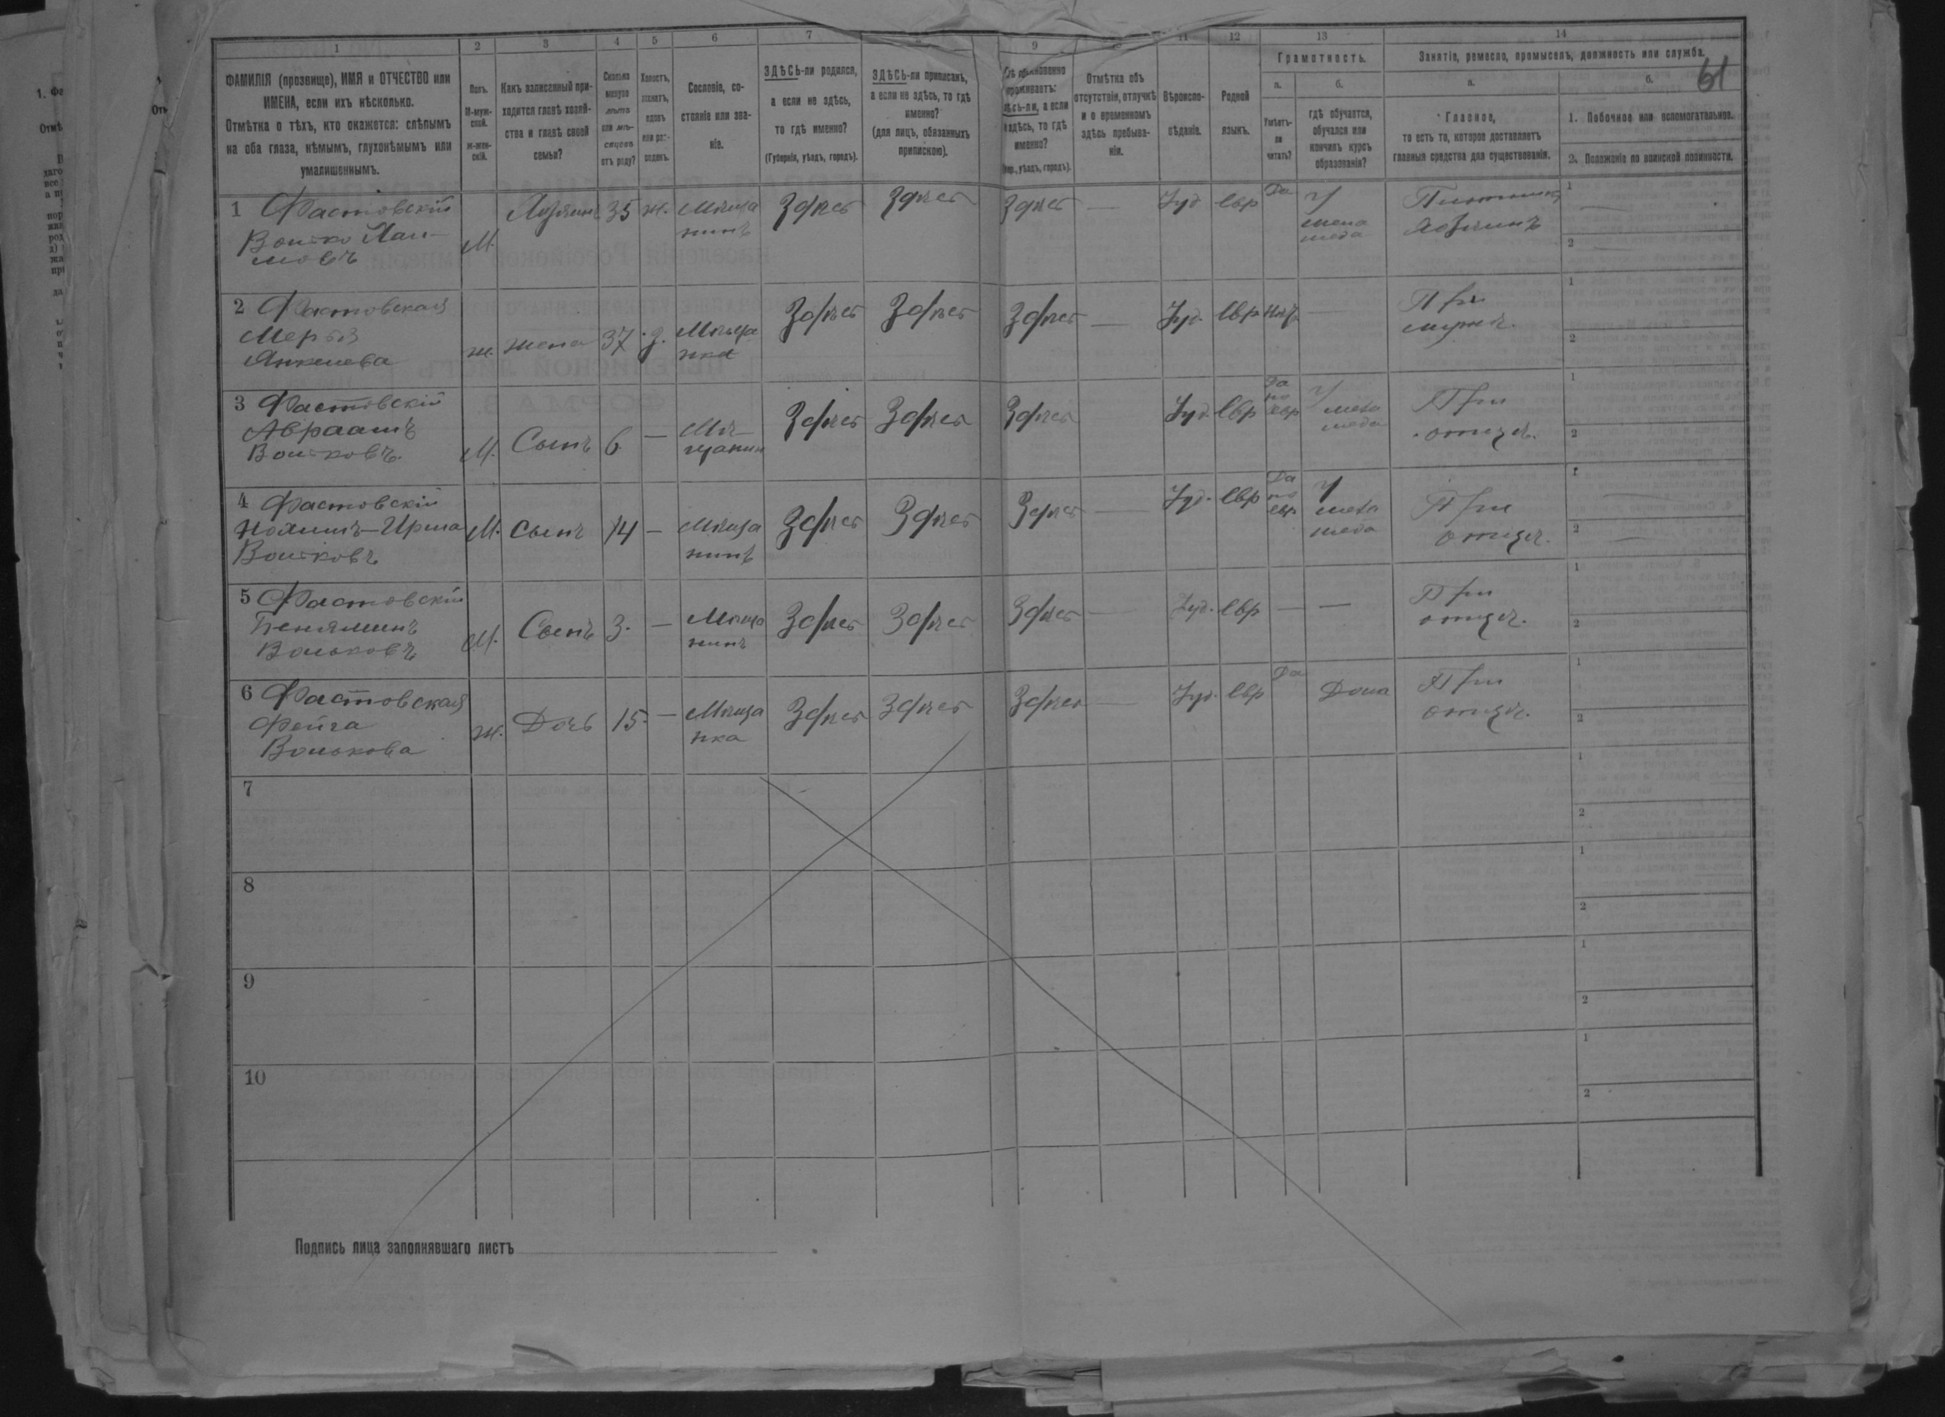 1 2 3 4 5 6 7 9 11 12 13 14
61
ФАМИЛІЯ (прозвище), ИМЯ и ОТЧЕСТВО или
ИМЕНА, если ихъ нѣсколько.
Отмѣтка о тѣхъ, кто окажется: слѣпымъ
на оба глаза, нѣмымъ, глухонѣмымъ или
умалишеннымъ.
Полъ.
М-муж-
ской.
Ж-жен-
скій.
Какъ записанный при-
ходится главѣ хозяй-
ства и главѣ своей
семьи?
Сколько
минуло
лѣтъ
или мѣ-
сяцевъ
отъ роду?
Холостъ,
женатъ,
вдовъ
или раз-
веденъ.
Сословіе, со-
стояніе или зва-
ніе.
ЗДѢСЬ-ли родился,
а если не здѣсь,
то гдѣ именно?
(Губернія, уѣздъ, городъ).
ЗДѢСЬ-ли приписанъ,
а если не здѣсь, то гдѣ
именно?
(для лицъ, обязанныхъ
припискою).
Гдѣ обыкновенно
проживаетъ:
здѣсь-ли, а если
не здѣсь, то гдѣ
именно?
(Губ., уѣздъ, городъ).
Отмѣтка объ
отсутствіи, отлучкѣ
и о временномъ
здѣсь пребыва-
ніи.
Вѣроиспо-
вѣданіе.
Родной
языкъ.
Грамотность.
а. б.
Умѣетъ-
ли
читать?
гдѣ обучается,
обучался или
кончилъ курсъ
образованія?
Занятіе, ремесло, промыселъ, должность или служба.
а. б.
Главное,
то есть то, которое доставляетъ
главныя средства для существованія.
1. Побочное или вспомогательное.
2. Положеніе по воинской повинности.
1 Фастовскій
Волько Хаи-
мовъ
М. Хозяинъ 35 ж. Мѣща
нинъ
Здѣсь Здѣсь Здѣсь — Іуд Евр Да
Плотникъ
хозяинъ
1 —
2 —
2 Фастовская
Янкелева
ж. жена 37 з. Мѣща
нка
Здѣсь Здѣсь Здѣсь — Іуд. Евр Нѣт —
При
мужѣ.
1
2
3 Фастовскій
Авраамъ
Вольковъ.
М. Сынъ 6 — Мѣ-
щанин
Здѣсь Здѣсь Здѣсь — Іуд Евр Да
по
евр
При
отцѣ.
1
2
4 Фастовскій
Вольковъ
М. сынъ 14 — Мѣща
нинъ
Здѣсь Здѣсь Здѣсь — Іуд. Евр Да
по
евр
При
отцѣ.
1 —
2 —
5 Фастовскій
Беняминъ
Вольковъ
М. Сынъ 3. — Мѣща
нинъ
Здѣсь Здѣсь Здѣсь — Іуд. Евр — —
При
отцѣ.
1
2
6 Фастовская
Фейга
Волькова
ж. Дочь 15 — Мѣща
нка
Здѣсь Здѣсь Здѣсь — Іуд. Евр Да Дома
При
отцѣ.
1
2
7
1
2
8
1
2
9
1
2
10
1
2
Подпись лица заполнявшаго листъ